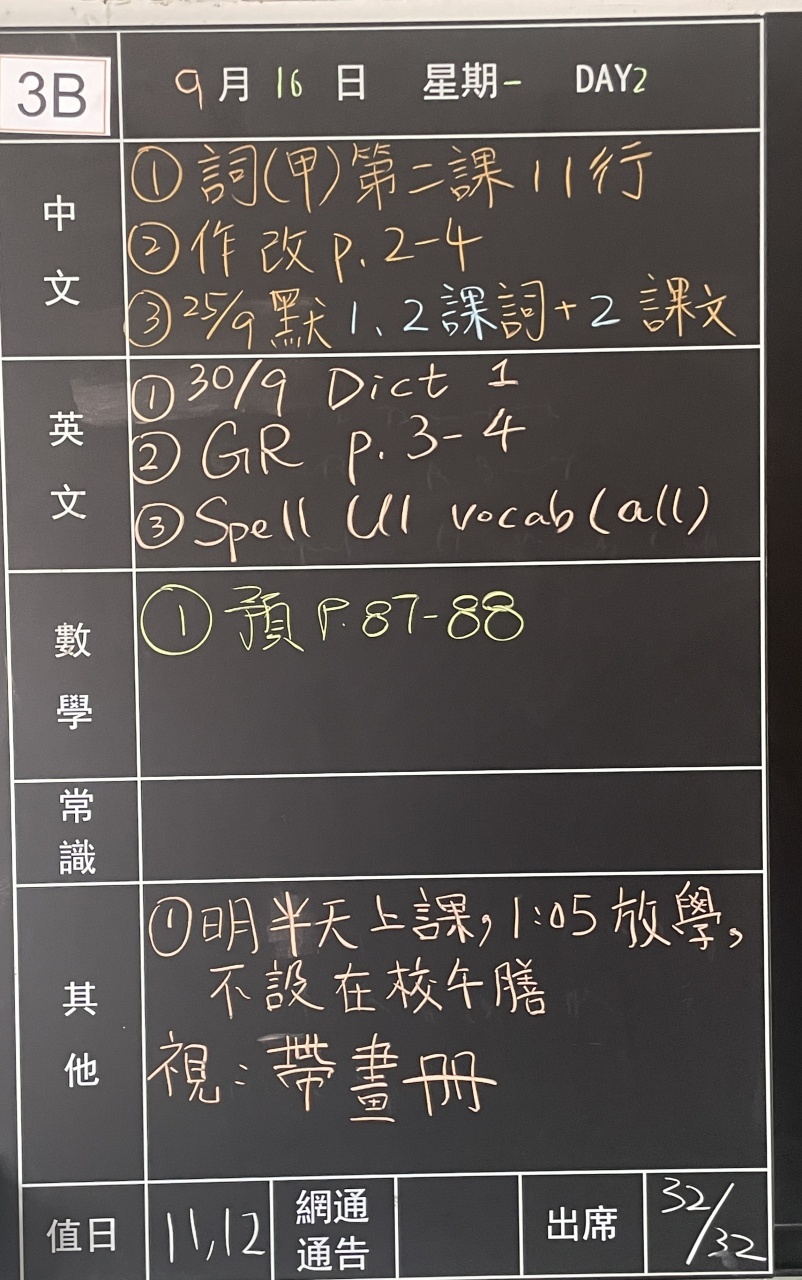 3B
9月16日 星期一 DAY2
中文
①詞(甲)第二課11行
②作改p.2-4
③25/9默1、2課詞+2課文
英文
①30/9 Dict 1
②GR p.3-4
③Spell U1 vocab(all)
數學
①預P.87-88
常識
其他
①明半天上課,1:05放學,
不設在校午膳
視:帶畫冊
值日 11,12 網通通告 出席 32/32